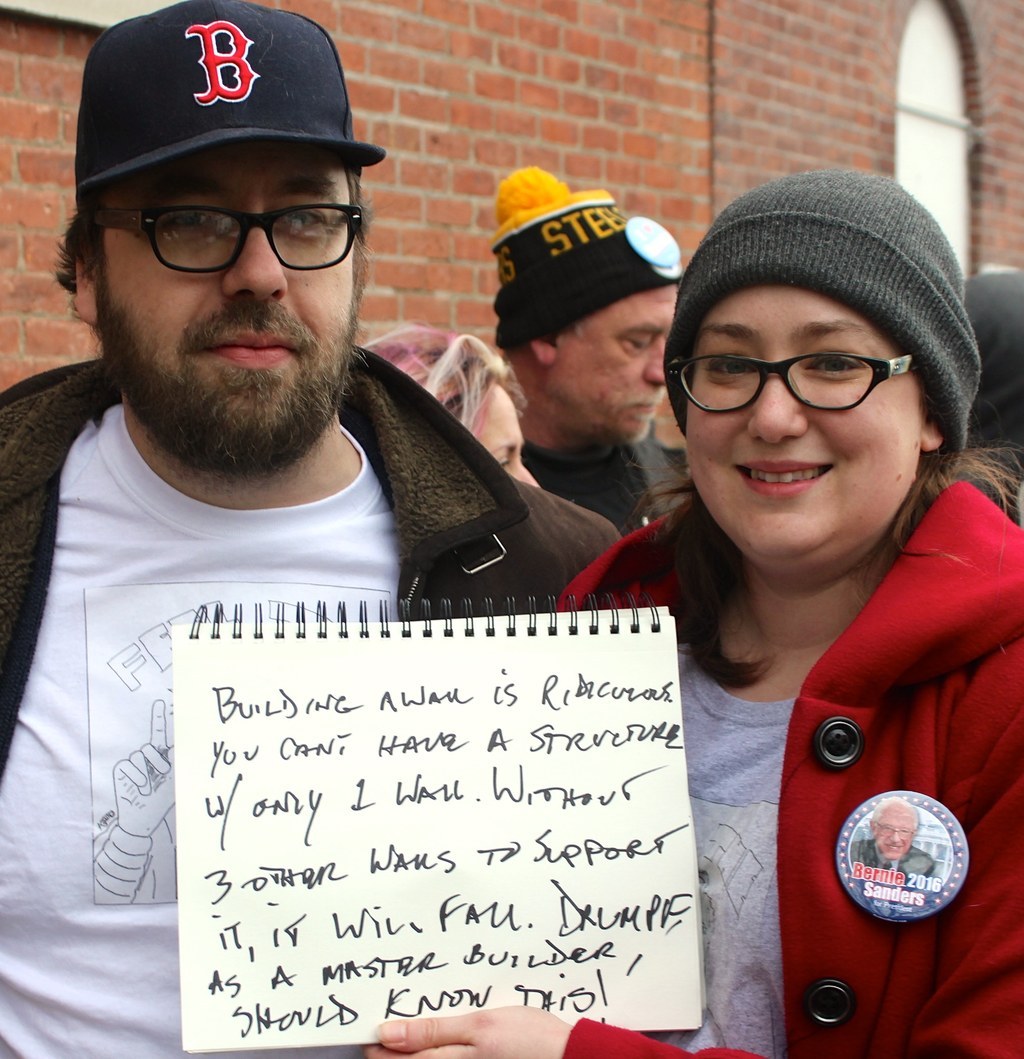 B
STEE
FE
BUILDING A WALL IS RIDICULOUS.
YOU CAN'T HAVE A STRUCTURE
W/ ONLY 1 WALL. WITHOUT
3 OTHER WALLS TO SUPPORT
IT, IT WILL FALL. DRUMPF,
AS A MASTER BUILDER,
SHOULD KNOW THIS!
Bernie 2016
Sanders
for President